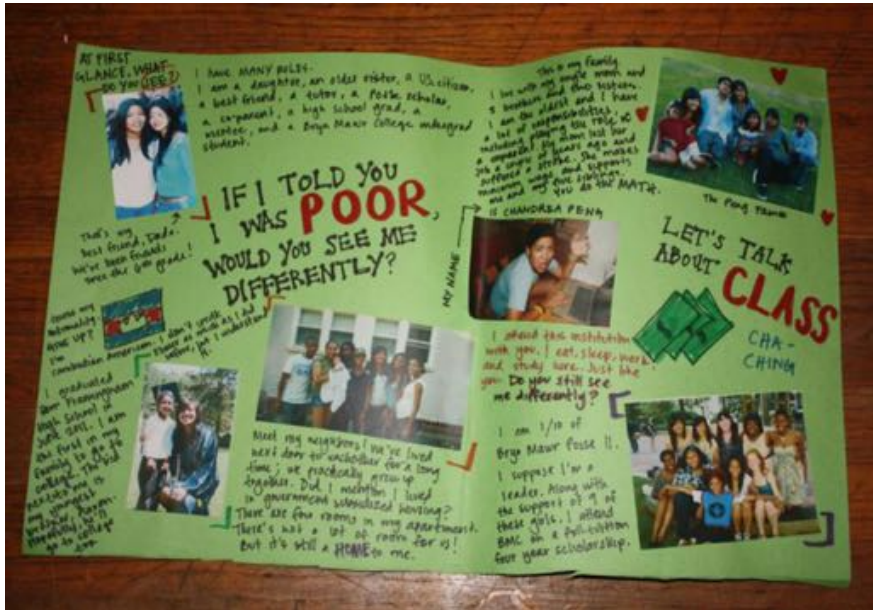 AT FIRST
GLANCE, WHAT
DO YOU SEE?
I have MANY ROLES.
I am a daughter, an older sister, a U.S. citizen,
a best friend, a tutor, a Posse scholar,
a co-parent, a high school grad, a
mentee, and a Bryn Mawr College undergrad
student.
That's my
best friend, Dada.
We've been friends
since the 6th grade!
IF I TOLD YOU
I WAS POOR,
WOULD YOU SEE ME
DIFFERENTLY?
nationality
I'm
Cambodian American. I don't speak
as much as I did
before, but I understand
it.
I graduated
from Framingham
High School in
June 2011. I am
the first in my
family to go to
college. The kid
next to me is
my youngest
brother
Hopefully, he'll
go to college
too.
Meet my neighbors! We've lived
next door to eachother for a long
time; we practically grew up
together. Did I mention I lived
in government subsidized housing?
There are four rooms in my apartment.
There's not a lot of room for us!
But it's still a HOME to me.
This is my family
I live with my single mom and
3 brothers and two sisters.
I am the oldest and I have
a lot of responsibilities,
including playing the role of
a coparent. My mom lost her
job a couple of years ago and
suffered a stroke. She makes
minimum wage and supports
me and my five siblings.
you do the MATH.
The Peng
MY NAME
IS CHANDREA PENG
LET'S TALK
ABOUT CLASS
CHA-
CHING
I attend this institution
with you. I eat, sleep, work
and study here. Just like
you. Do you still see
me differently?
I am 1/10 of
Bryn Mawr Posse 11.
I suppose I'm a
leader. Along with
the support of 9 of
these girls, I attend
BMC on a full-tuition
four year scholarship.